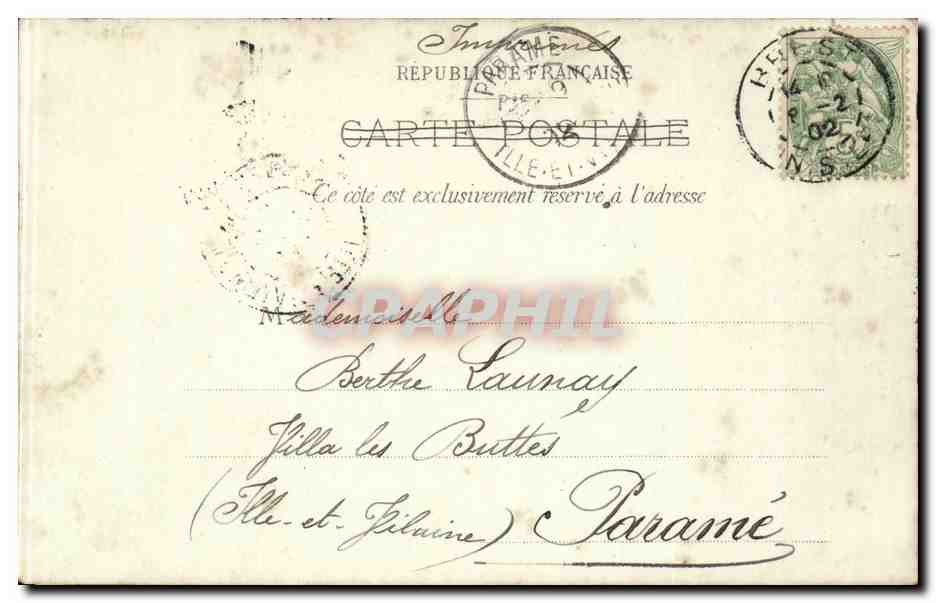 Imprimés
RÉPUBLIQUE FRANÇAISE
CARTE POSTALE
Ce côté est exclusivement réservé à l'adresse
PARAMÉ
ILLE-ET-V
BREST
02
CPAPHIL
Mademoiselle
Berthe Launay
Villa les Buttes
(Ille-et-Vilaine) Paramé